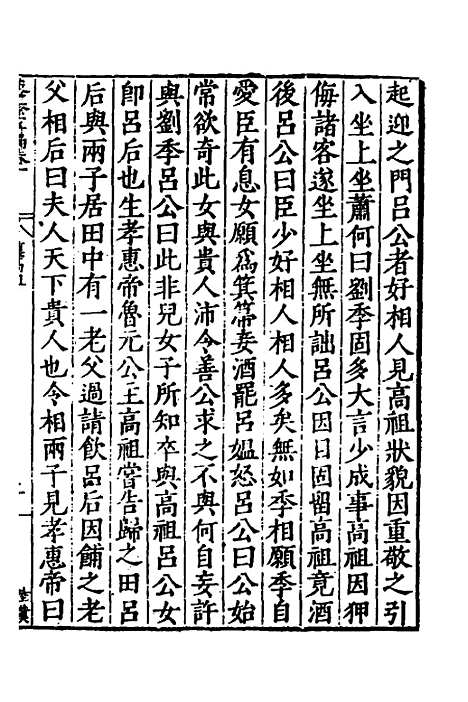 起迎之門呂公者好相人見高祖狀貌因重敬之引
入坐上坐蕭何曰劉季固多大言少成事高祖因狎
侮諸客遂坐上坐無所詘呂公因目固留高祖竟酒
後呂公曰臣少好相人相人多矣無如季相願季自
愛臣有息女願爲箕箒妾酒罷呂媼怒呂公曰公始
常欲奇此女與貴人沛令善公求之不與何自妄許
與劉季呂公曰此非兒女子所知卒與高祖呂公女
卽呂后也生孝惠帝魯元公主高祖嘗告歸之田呂
后與兩子居田中有一老父過請飲呂后因餔之老
父相后曰夫人天下貴人也令相兩子見孝惠帝曰